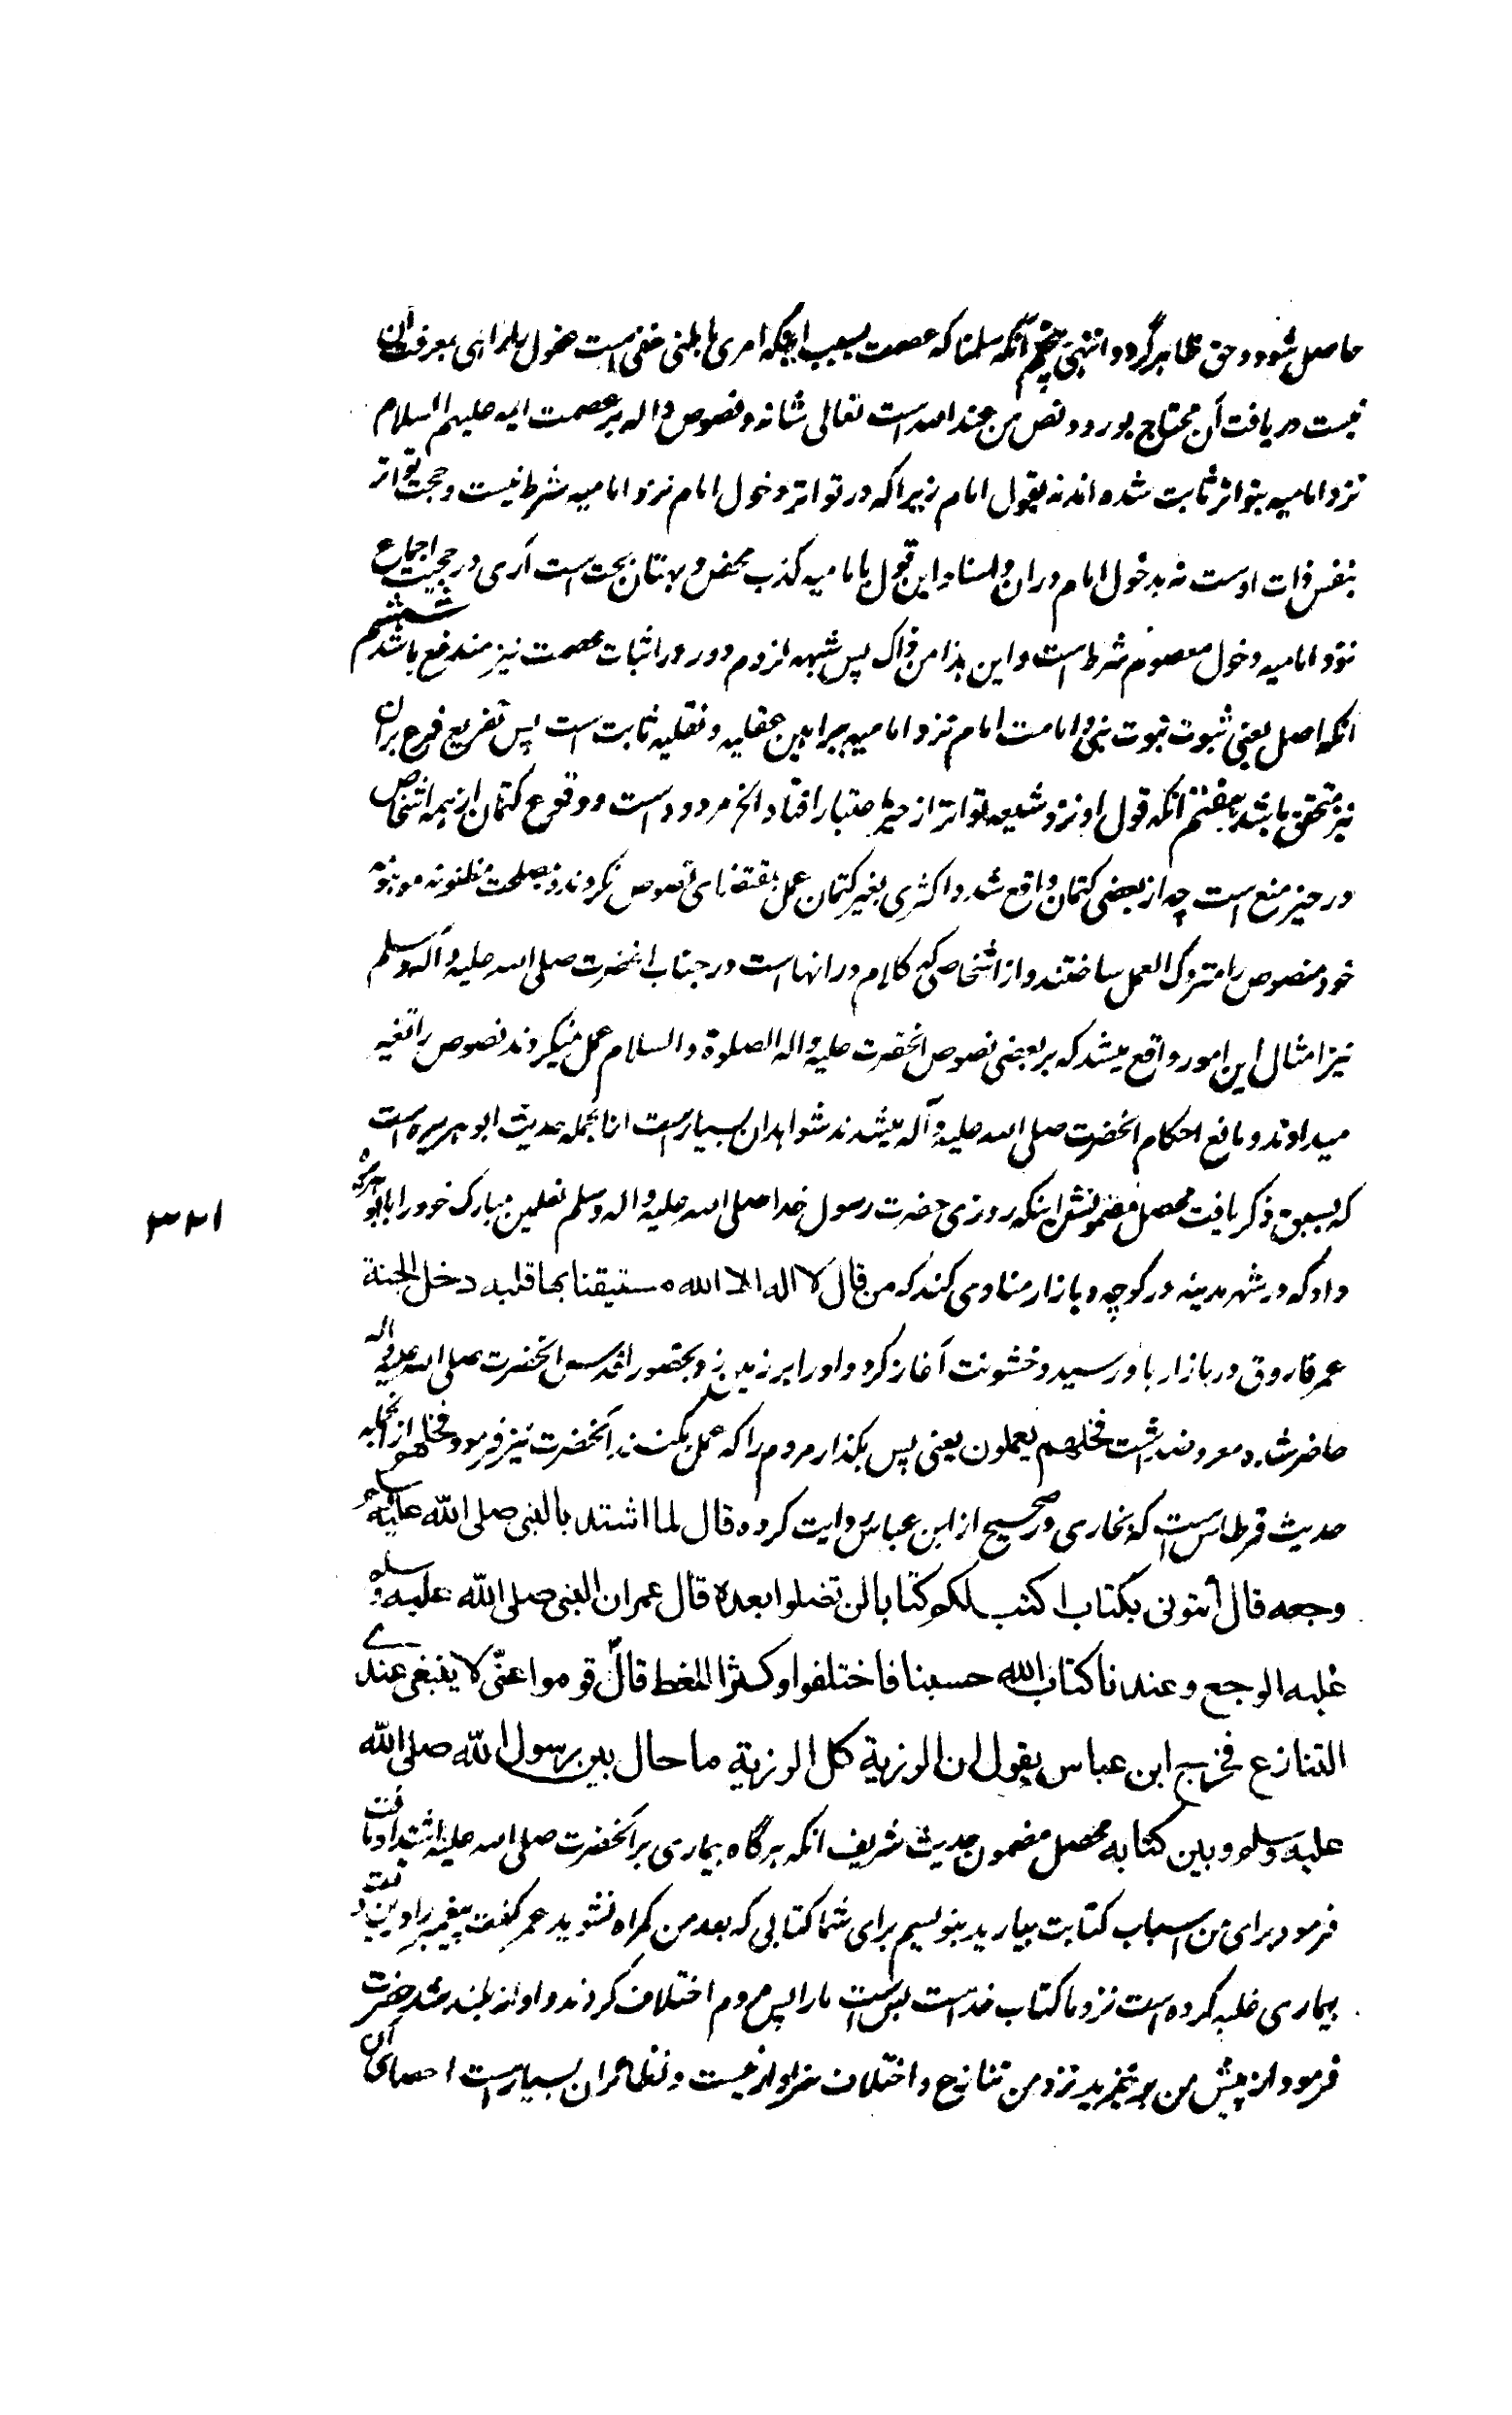 حاصل شود و حق ظاهر گردد انتهی پنجم آنکه سلمنا که عصمت بسبب اینکه امری باطنی خفی است عقول را راهی بمعرفت آن
نیست دریافت آن محتاج بورود نص من عند الله است تعالی شانه و نصوص داله بر عصمت ایمه علیهم السلام
نزد امامیه بتواتر ثابت شده اند نه بقول امام زیرا که در تواتر دخول امام نزد امامیه شرط نیست و حجت تواتر
بنفس ذات اوست نه بدخول امام دران و اسناد این قول بامامیه کذب محض و بهتان بحت است آری در حجیت اجماع
نزد امامیه دخول معصوم شرط است و این هذا من ذاک پس شبهه لزوم دور در اثبات عصمت نیز مندفع باشد ششم
انکه اصل یعنی ثبوت نبوت نبی و امامت امام نزد امامیه ببراهین عقلیه و نقلیه ثابت است پس تفریع فرع بران
نیز متحقق باشد هفتم انکه قول او نزد شیعه تواتر از حیز اعتبار افتاد الخ مردود است و وقوع کتمان از همه اشخاص
در حیز منع است چه از بعضی کتمان واقع شد و اکثری بغیر کتمان عمل بمقتضای نصوص نکردند و بمصلحت مظنونه موهومه
خود منصوص را متروک العمل ساختند و از اشخاصی که کلام در انها است در جناب انحضرت صلی الله علیه و آله وسلم
نیز امثال این امور واقع میشد که بر بعضی نصوص انحضرت علیه و اله الصلوة والسلام عمل نمیکردند نصوص را تغیر
میدادند و مانع احکام انحضرت صلی الله علیه و آله میشدند شواهد ان بسیار است ازانجمله حدیث ابو هریره است
که بسبق ذکر یافت محصل مضمونش اینکه روزی حضرت رسول خدا صلی الله علیه و اله وسلم نعلین مبارک خود را بابو هریره
داد که در شهر مدینه در کوچه و بازار منادی کند که من قال لا اله الا الله مستیقنا بها قلبه دخل الجنة
عمر فاروق در بازار باو رسید و خشونت آغاز کرد و اورا بر زمین زد و بحضور اقدس انحضرت صلی الله علیه و اله
حاضر شد و معروض داشت فخلهم یعملون یعنی پس بگذار مردم را که عمل بکنند آنحضرت نیز فرمود فخلهم ازانجمله
حدیث قرطاس است که بخاری در صحیح از ابن عباس روایت کرده قال لما اشتد بالنبی صلی الله علیه وسلم
وجعه قال ائتونی بکتاب اکتب لکم کتابا لن تضلوا بعده قال عمر ان النبی صلی الله علیه وسلم
غلبه الوجع وعندنا کتاب الله حسبنا فاختلفوا وکثر اللغط قال قوموا عنی لا ینبغی عندی
التنازع فخرج ابن عباس یقول ان الرزیة کل الرزیة ما حال بین رسول الله صلی الله
علیه وسلم وبین کتابه محصل مضمون حدیث شریف انکه هرگاه بیماری بر آنحضرت صلی الله علیه اشتداد یافت
فرمود برای من اسباب کتابت بیارید بنویسم برای شما کتابی که بعد من گمراه نشوید عمر گفت پیغمبر را
بیماری غلبه کرده است نزد ما کتاب خداست بس است مارا پس مردم اختلاف کردند و آواز بلند شد حضرت
فرمود از پیش من برخیزید نزد من تنازع و اختلاف سزاوار نیست و نظائر ان بسیار است احصای آن
۳۲۱